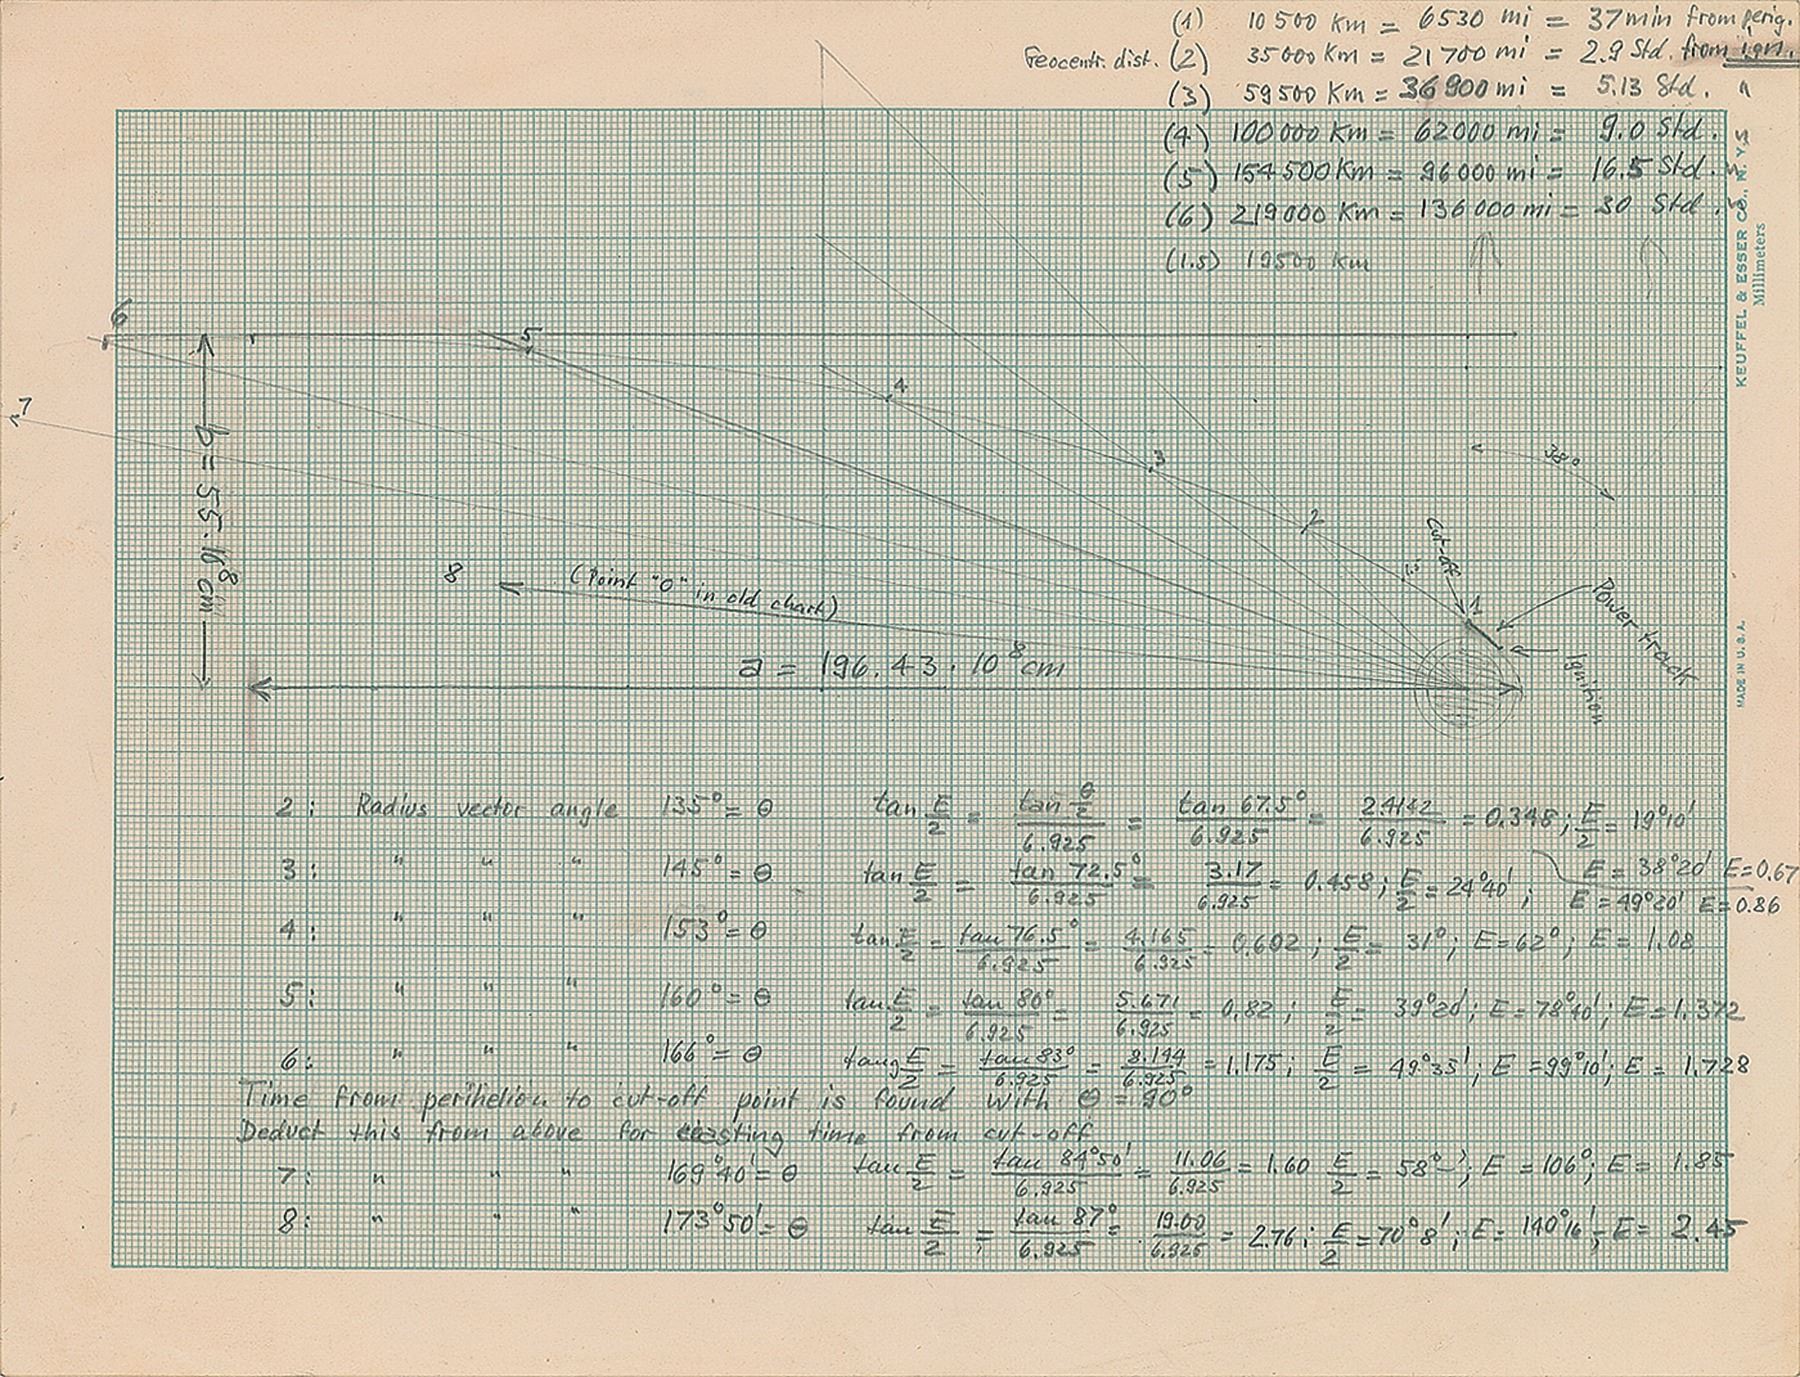 (1) 10 500 Km = 6530 mi = 37 min from perig.
Geocentr. dist. (2) 35 000 Km = 21 700 mi = 2.9 Std. from ign.
(3) 59 500 Km = 36 900 mi = 5.13 Std. "
(4) 100 000 Km = 62 000 mi = 9.0 Std.
(5) 154 500 Km = 96 000 mi = 16.5 Std.
(6) 219 000 Km = 136 000 mi = 30 Std.
(1.5) 19500 Km
KEUFFEL & ESSER CO., N. Y.
Millimeters
MADE IN U.S.A.
6
5
4
7
3
38°
2
b = 55.10⁸ cm
Cut-off
1.5
1
8
(Point "O" in old chart)
Power track
Ignition
a = 196.43 · 10⁸ cm
2: Radius vector angle 135° = θ tan E/2 = tan θ/2 / 6.925 = tan 67.5° / 6.925 = 2.4142 / 6.925 = 0.348; E/2 = 19°10'
E = 38°20' E = 0.67
3: " " " 145° = θ tan E/2 = tan 72.5° / 6.925 = 3.17 / 6.925 = 0.458; E/2 = 24°40'; E = 49°20' E = 0.86
4: " " " 153° = θ tan E/2 = tan 76.5° / 6.925 = 4.165 / 6.925 = 0.602; E/2 = 31°; E = 62°; E = 1.08
5: " " " 160° = θ tan E/2 = tan 80° / 6.925 = 5.671 / 6.925 = 0.82; E/2 = 39°20'; E = 78°40'; E = 1.372
6: " " " 166° = θ tang E/2 = tan 83° / 6.925 = 8.144 / 6.925 = 1.175; E/2 = 49°35'; E = 99°10'; E = 1.728
Time from perihelion to cut-off point is found with θ = 90°
Deduct this from above for coasting time from cut-off
7: " " " 169°40' = θ tan E/2 = tan 84°50' / 6.925 = 11.06 / 6.925 = 1.60 E/2 = 58°-; E = 106°; E = 1.85
8: " " " 173°50' = θ tan E/2 = tan 87° / 6.925 = 19.00 / 6.925 = 2.76; E/2 = 70°8'; E = 140°16'; E = 2.45